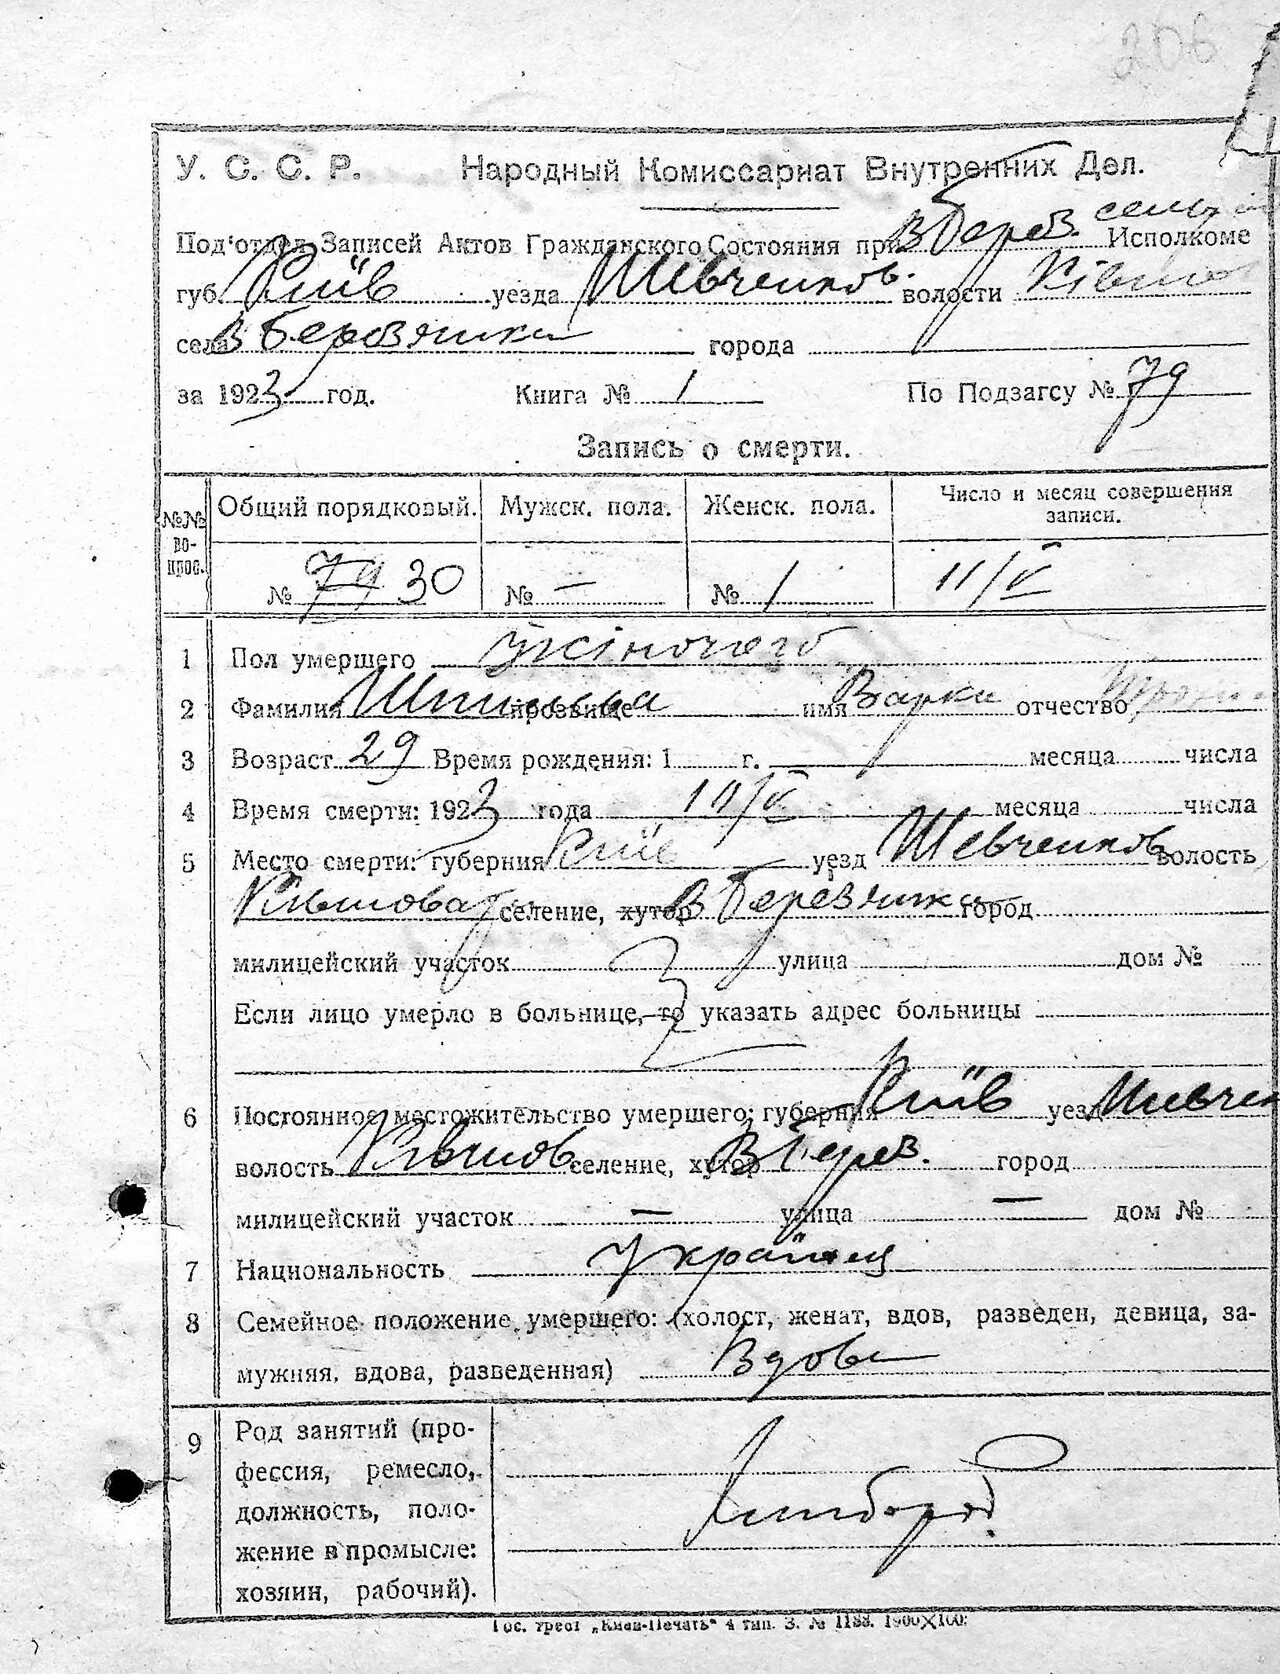 206
У. С. С. Р. Народный Комиссариат Внутренних Дел.
Под'отдел Записей Актов Гражданского Состояния при В Берез. сель Исполкоме
губ. Київ уезда Шевченков. волости
села В Березянки города
за 1923 год. Книга № 1 По Подзагсу № 79
Запись о смерти.
№№ вопрос. Общий порядковый. Мужск. пола. Женск. пола. Число и месяц совершения записи.
№ 79 30 № — № 1 11/V
1 Пол умершего жіночого
2 Фамилия прозвище имя Варка отчество
3 Возраст 29 Время рождения: 1 г. месяца числа
4 Время смерти: 1923 года 10/V месяца числа
5 Место смерти: губерния Київ уезд Шевченков волость
селение, хутор В Березянки город
милицейский участок улица дом №
Если лицо умерло в больнице, то указать адрес больницы
6 Постоянное местожительство умершего: губерния Київ уезд Шевчен
волость селение, хутор В Берез. город
милицейский участок — улица — дом №
7 Национальность Українец
8 Семейное положение умершего: (холост, женат, вдов, разведен, девица, за-
мужняя, вдова, разведенная) Вдова
9 Род занятий (про-
фессия, ремесло,
должность, поло-
жение в промысле: хлибороб
хозяин, рабочий).
Гос. трест „Киев-Печать“ 4 тип. З. № 1188. 1900Х100.